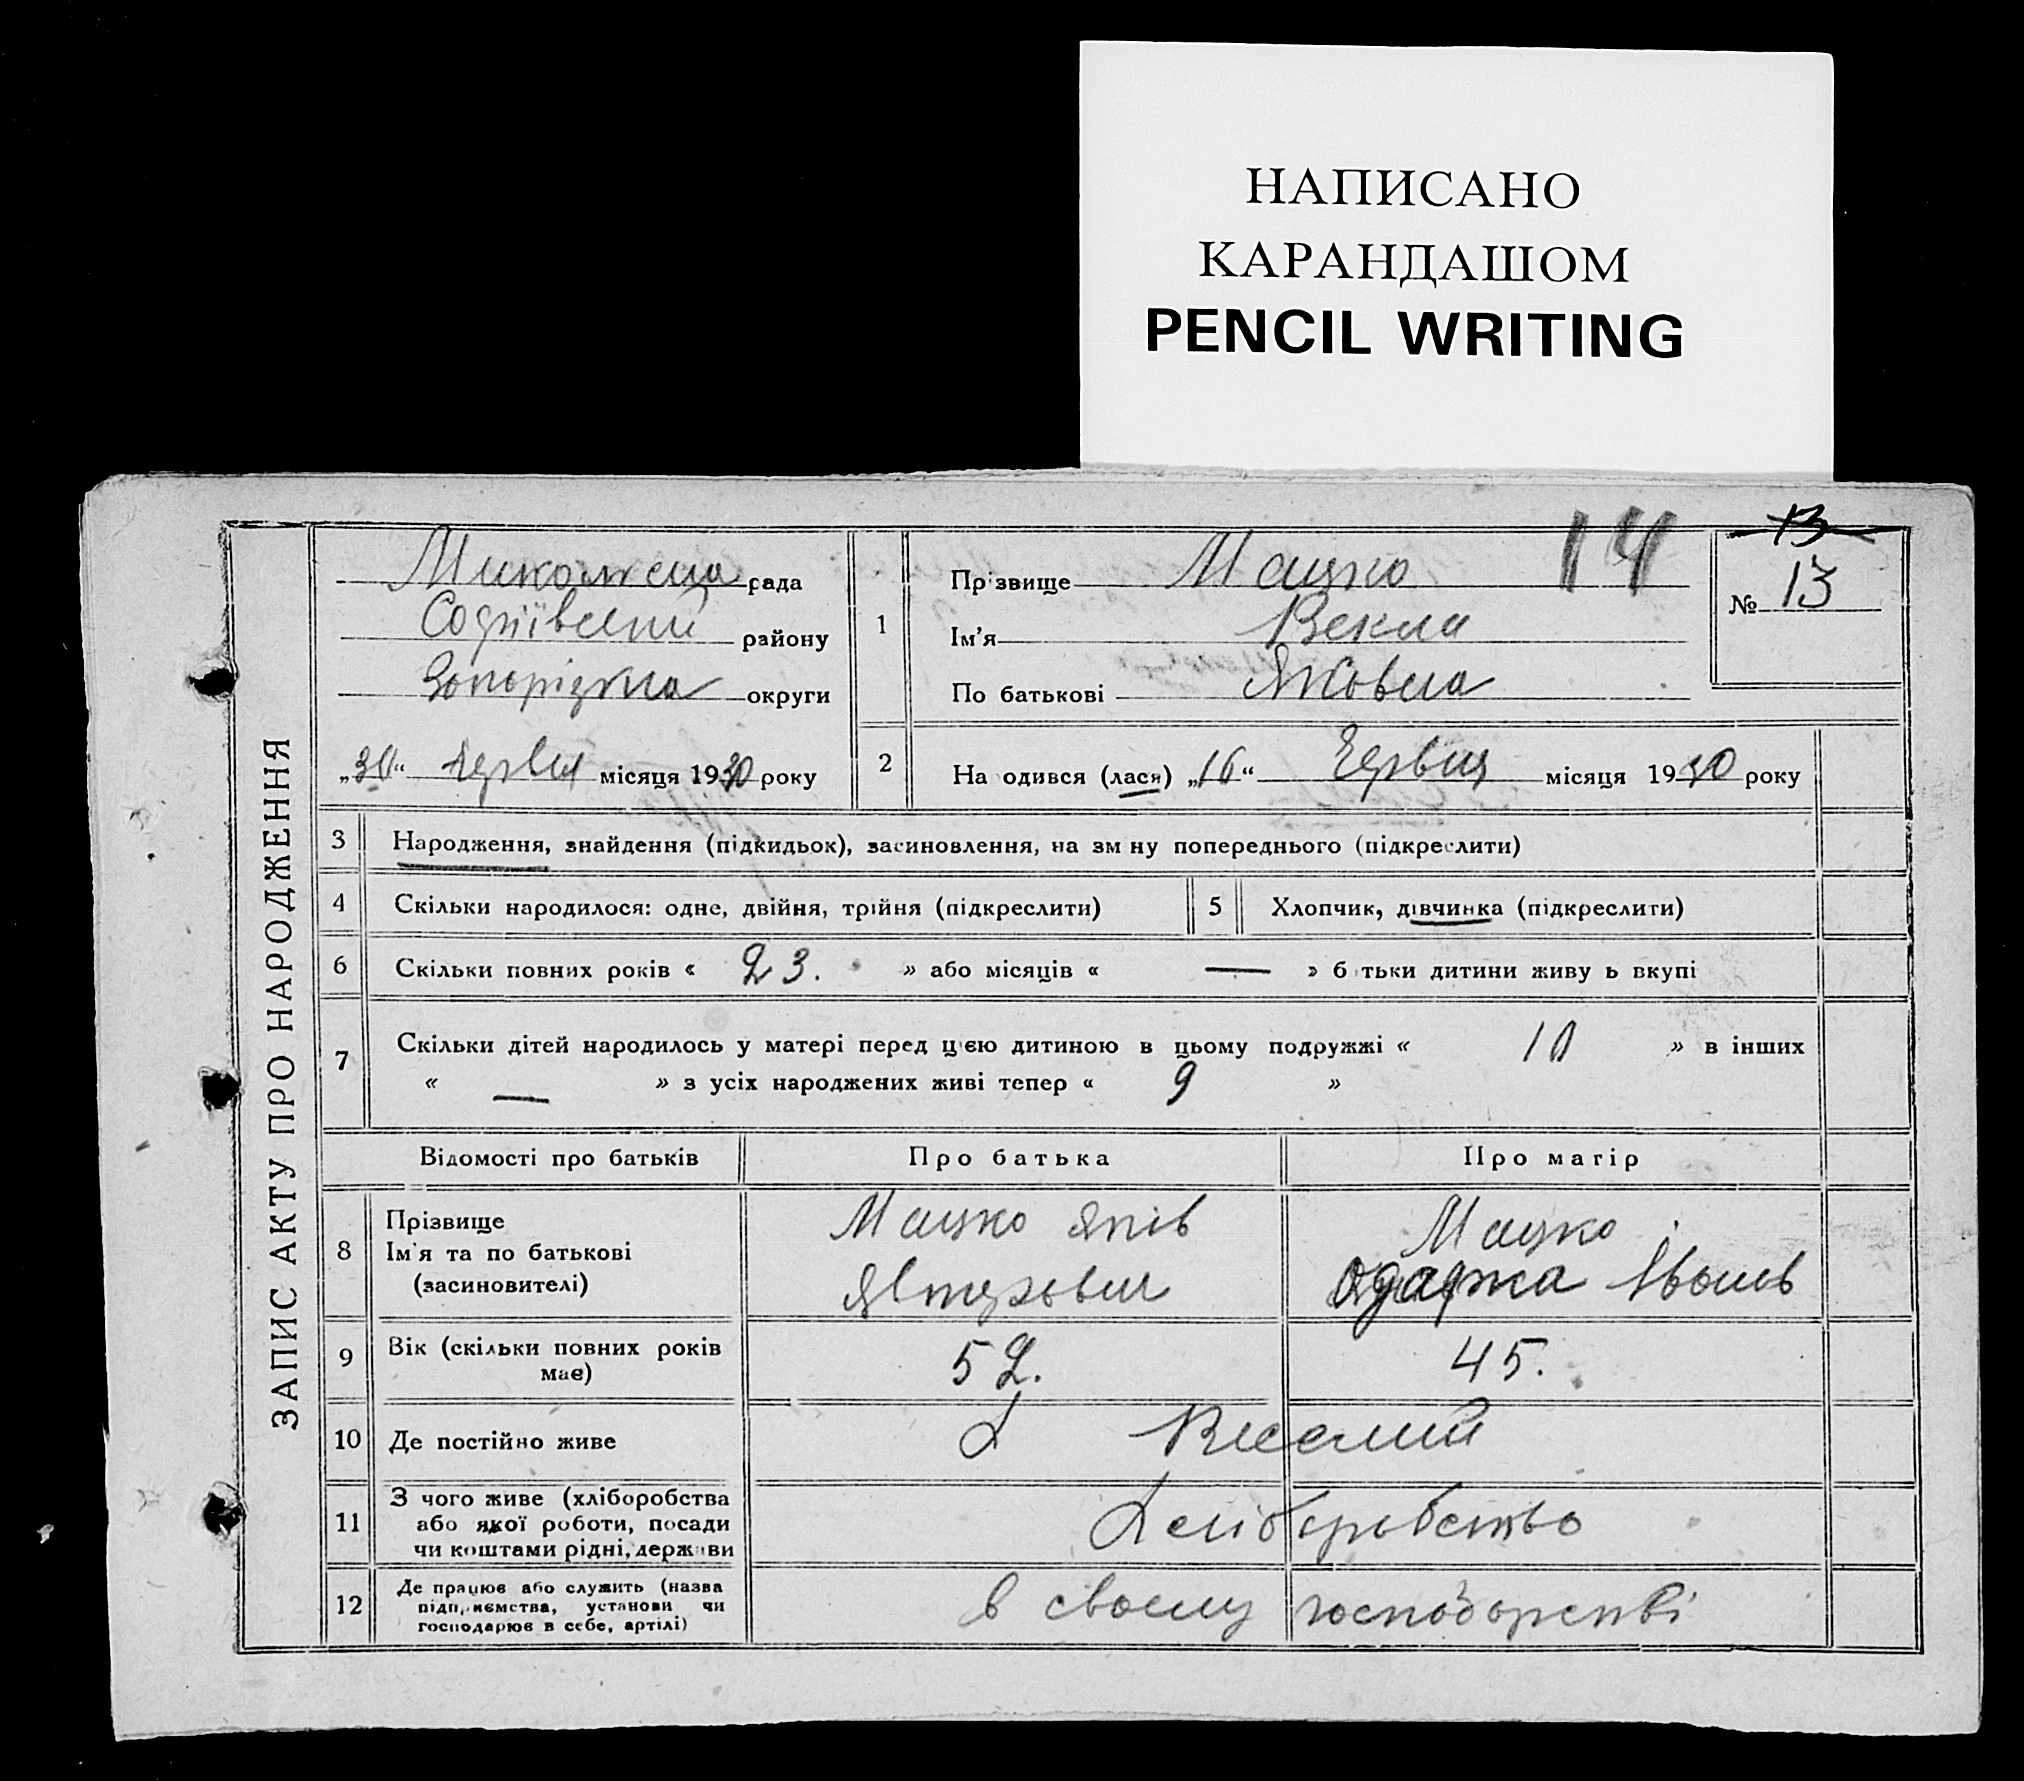 НАПИСАНО
КАРАНДАШОМ
PENCIL WRITING
ЗАПИС АКТУ ПРО НАРОДЖЕННЯ
рада
Софіївский району
Запорізька округи
„30“ червня місяця 1930 року
1
Прізвище Мацко
14
Ім'я Векла
По батькові Яковна
13
№ 13
2 На одився (лася) „16“ Червця місяця 1930 року
3 Народження, знайдення (підкидьок), засиновлення, на зм ну попереднього (підкреслити)
4 Скільки народилося: одне, двійня, трійня (підкреслити)
5 Хлопчик, дівчинка (підкреслити)
6 Скільки повних років « 23. » або місяців « — » б тьки дитини живу ь вкупі
7 Скільки дітей народилось у матері перед цією дитиною в цьому подружжі « 10 » в інших
« — » з усіх народжених живі тепер « 9 »
Відомості про батьків Про батька Про матір
8 Прізвище
Ім'я та по батькові
(засиновителі)
Мацко Яків
Явтухович
Мацко
Одарка Іванів
9 Вік (скільки повних років
має)
52. 45.
10 Де постійно живе
Х Веселий
11 З чого живе (хліборобства
або якої роботи, посади
чи коштами рідні, держави
Хліборобство
12 Де працює або служить (назва
підприємства, установи чи
господарює в себе, артілі)
в своему господорстві